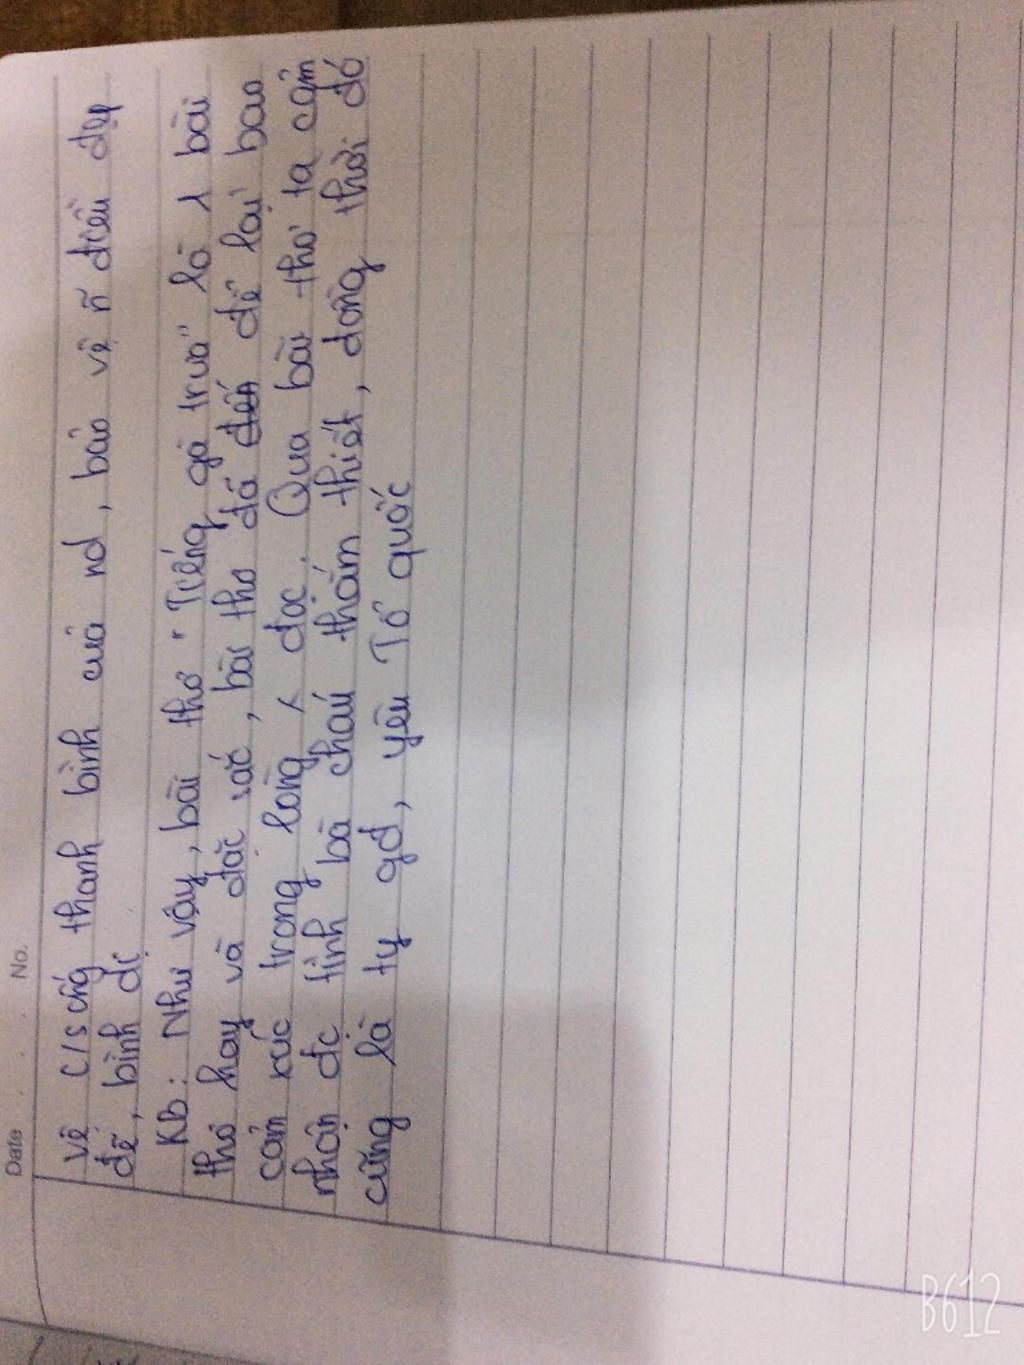 Date . . . No.
vệ c/s cũg thanh bình của nd, bảo vệ ~n điều đẹp
đẽ, bình dị
KB: Như vậy, bài thơ "Tiếng gà trưa" là 1 bài
thơ hay và đặc sắc, bài thơ đã đến để lại bao
cảm xúc trong lòng ng đọc. Qua bài thơ ta cảm
nhận đc tình bà cháu thắm thiết, đồng thời đó
cũng là ty gđ, yêu Tổ quốc
B612